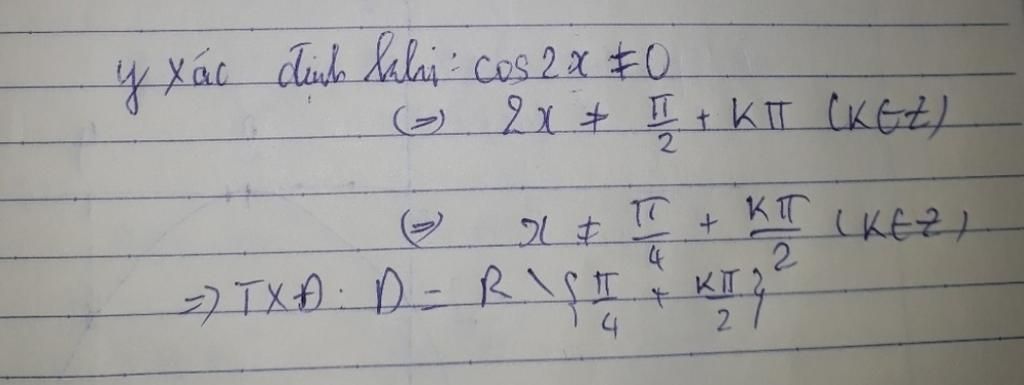 y xác định khi: cos2x ≠ 0
(=) 2x ≠ π/2 + Kπ (K∈Z)
(=) x ≠ π/4 + Kπ/2 (K∈Z)
=) TXĐ: D = R \ {π/4 + Kπ/2}